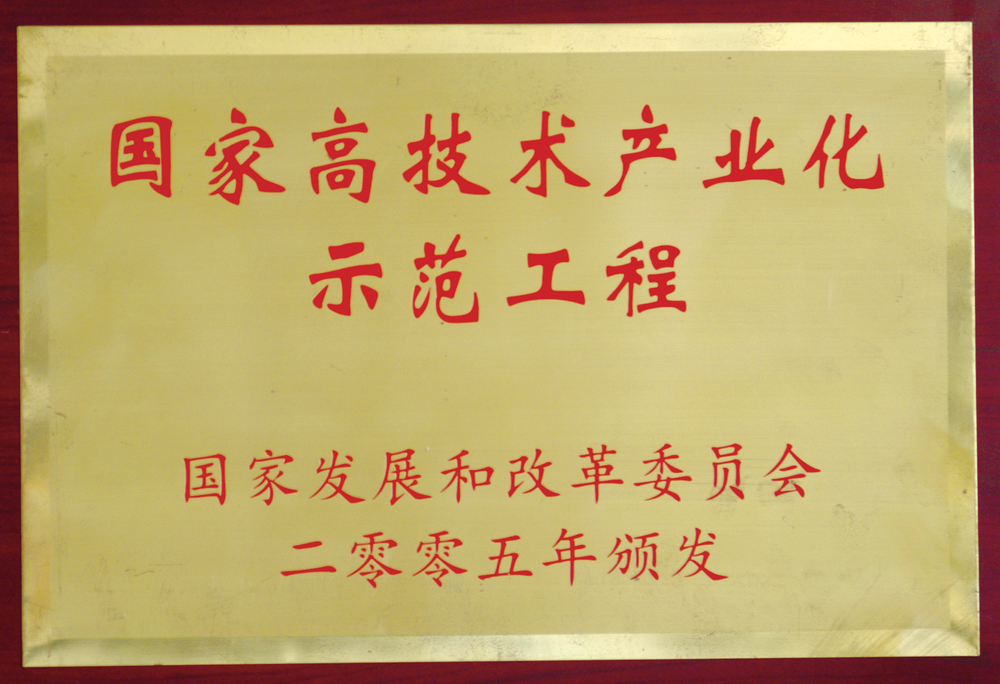 国家高技术产业化
示范工程
国家发展和改革委员会
二零零五年颁发